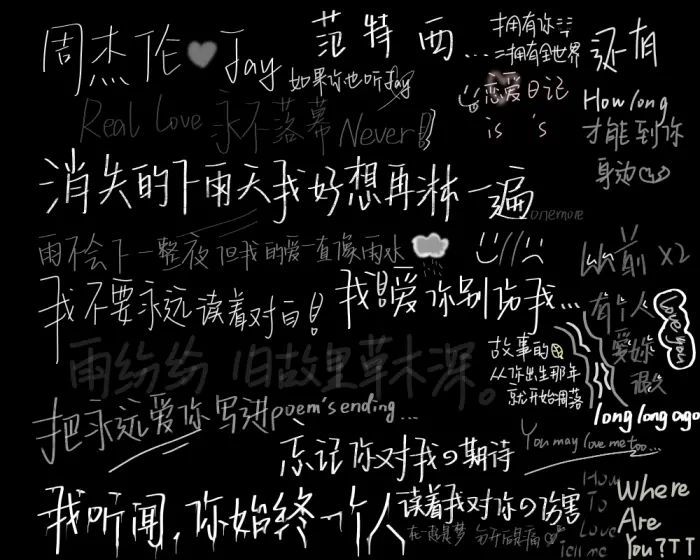 周杰伦 Jay
范特西...
拥有你
=拥有全世界
还有
如果你也听Jay
恋爱日记
is 's
How long
才能到你
身边
Real Love 永不落幕 Never!
消失的下雨天我好想再淋一遍
onemore
雨不会下一整夜 但我的爱一直像雨水
从前 x2
我不要永远读着对白!
我爱你别伤我...
有个人
爱你
很久
Love you
long long ago
故事的
从你出生那年
就开始凋落
雨纷纷 旧故里草木深。
把永远爱你写进poem's ending...
You may love me too...
忘记你对我の期待
我听闻,你始终一个人
读着我对你の伤害
How
To
Love
Tell me
Where
Are
You?TT